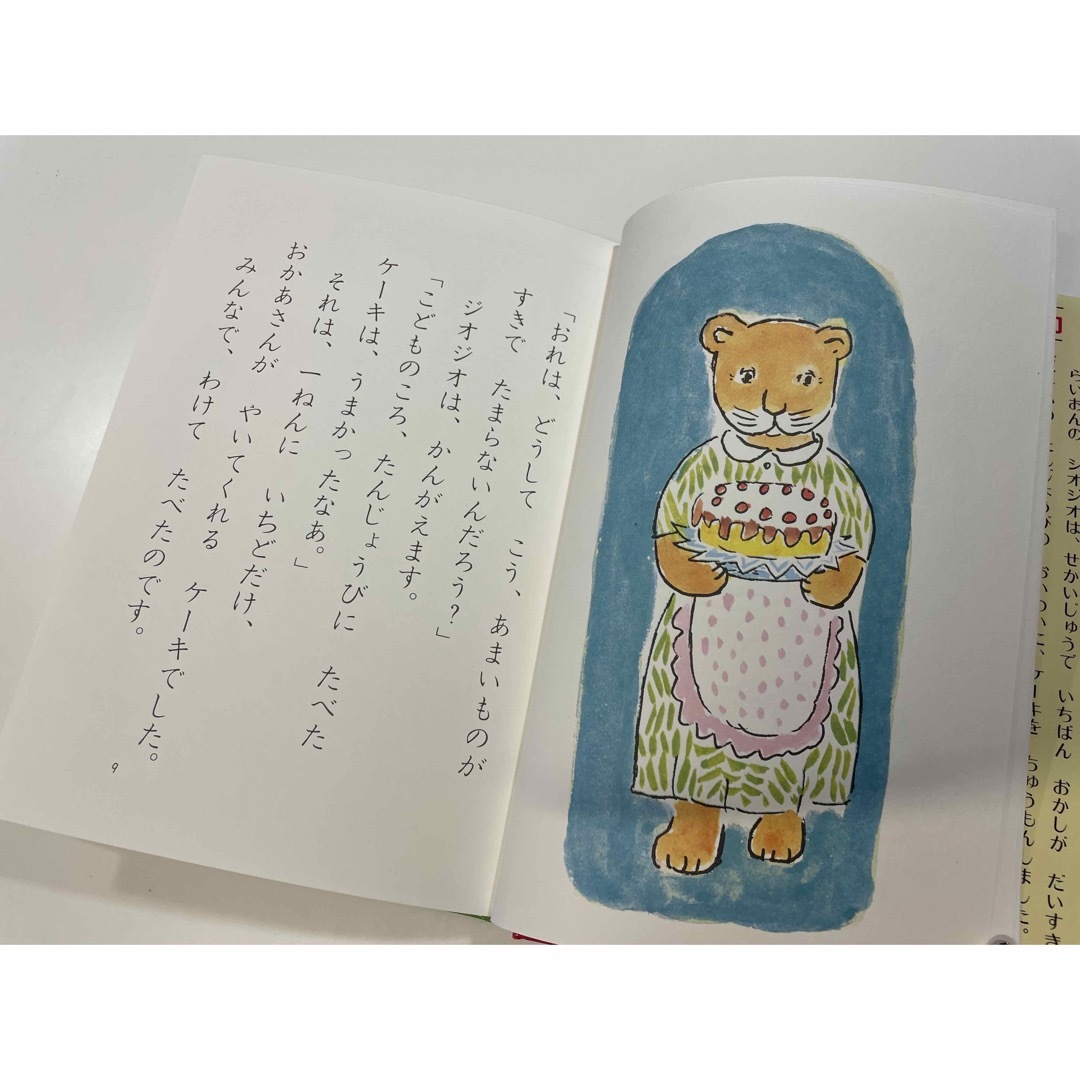 「おれは、どうして こう、あまいものが
すきで たまらないんだろう？」
ジオジオは、かんがえます。
「こどものころ、たんじょうびに たべた
ケーキは、うまかったなあ。」
それは、一ねんに いちどだけ、
おかあさんが やいてくれる ケーキでした。
みんなで、わけて たべたのです。
9
らいおんの ジオジオは、せかいじゅうで いちばん おかしが だいすき
おいわいに、ケーキを ちゅうもんしました。